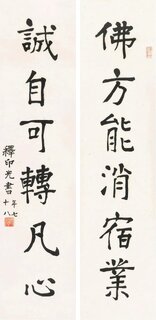 佛方能消宿業
誠自可轉凡心
釋印光書
年七
十八